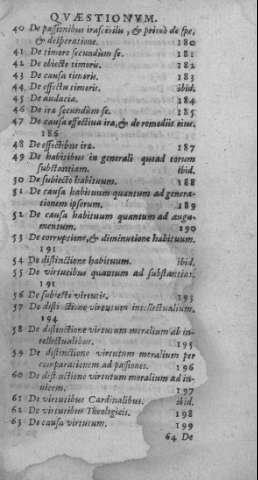 QVÆSTIONVM.
40 De passionibus irascibilis, & primò de spe,
& desperatione. 180
41 De timore secundum se. 181
42 De obiecto timoris. 182
43 De causa timoris. 183
44 De effectu timoris. ibid.
45 De audacia. 184
46 De ira secundum se. 185
47 De causa effectiua ira, & de remediis eius.
186
48 De effectibus ira. 187
49 De habitibus in generali quoad eorum
substantiam. ibid.
50 De subiecto habituum. 188
51 De causa habituum quantum ad genera-
tionem ipsorum. 189
52 De causa habituum quantum ad augu-
mentum. 190
53 De corruptione, & diminutione habituum.
191
54 De distinctione habituum. ibid.
55 De virtutibus quantum ad substantias.
191
56 De subiecto virtutis. 193
57 De distinctione virtutum intellectualium.
194
58 De distinctione virtutum moralium ab in-
tellectualibus. 195
59 De distinctione virtutum moralium per
comparationem ad passiones. 196
60 De distinctione virtutum moralium ad in-
uicem. 197
61 De virtutibus Cardinalibus. ibid.
62 De virtutibus Theologicis. 198
63 De causa virtutum. 199
64 De